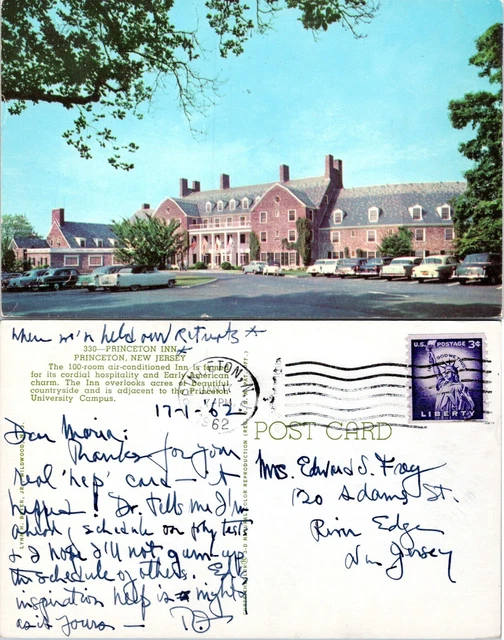 when we'n held our Retreats *
330—PRINCETON INN
PRINCETON, NEW JERSEY
The 100-room air-conditioned Inn is famed
for its cordial hospitality and Early American
charm. The Inn overlooks acres of beautiful
countryside and is adjacent to the Princeton
University Campus.
17-1-'62
PRINCETON
PM
62
U.S. POSTAGE 3¢
IN GOD WE TRUST
LIBERTY
POST CARD
Dear Maria:
Thanks for your
real 'hep' card – it
helped! Dr. tells me I'm
ahead of schedule on phy tests
& I hope I'll not gum up
the schedule of others.
inspiration help is mighty
as is yours —
Mrs. Edward J. Fray
120 Adams St.
River Edge
New Jersey